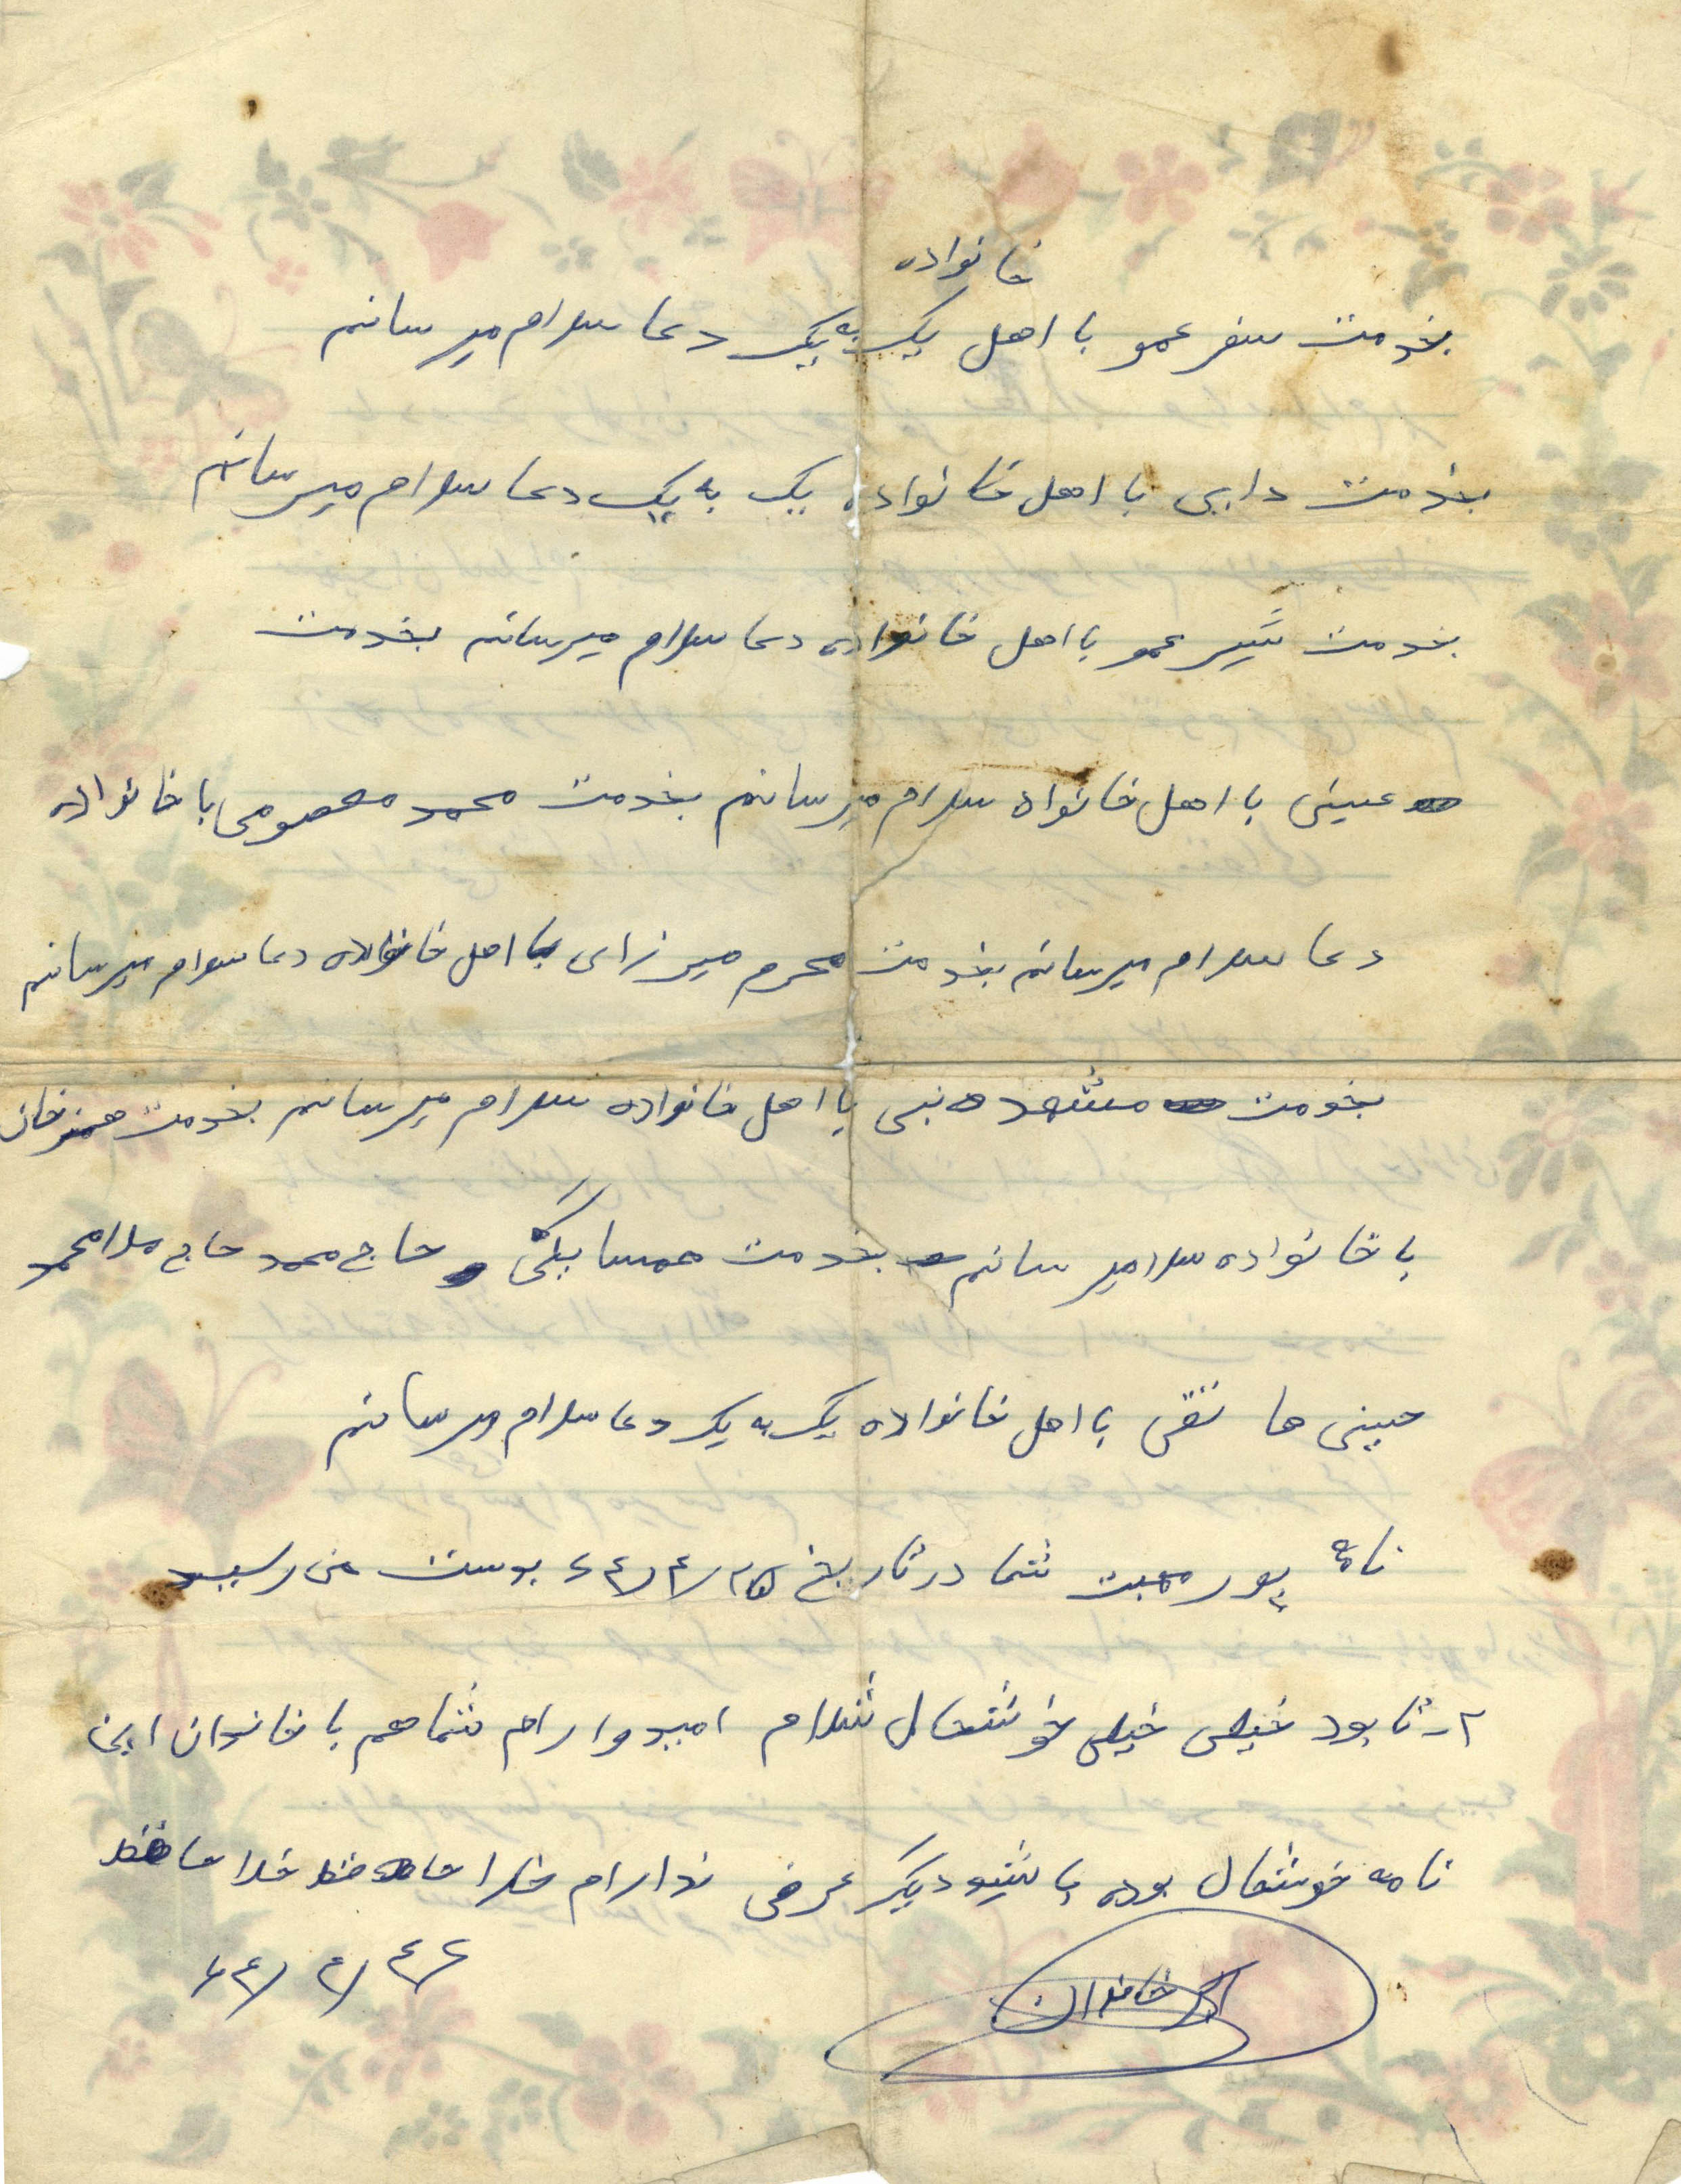 خانواده
بخدمت سفر عمو با اهل یک به یک دعا سلام میرسانم
بخدمت دایی با اهل خانواده یک به یک دعا سلام میرسانم
بخدمت شیر عمو با اهل خانواده دعا سلام میرسانم بخدمت
عینی با اهل خانواه سلام میرسانم بخدمت محمد معصومی با خانواده
دعا سلام میرسانم بخدمت محرم میرزای با اهل خانواده دعا سلام میرسانم
بخدمت مشهده نبی با اهل خانواده سلام میرسانم بخدمت
با خانواده سلامیرسانم بخدمت همسایگی حاج محمد حاج ملامحمد
حبینی ها تقی با اهل خانواده یک به یک دعا سلام میرسانم
نامه پور محبت شما در تاریخ ۶۴/۴/۲۵ بدست من رسید
۲ - تا بود خیلی خیلی خوشحال شدام امیدوارام شما هم با خاندان این
نامه خوشحال بوده باشید دیگر عرضی ندارام خدا حافظ خدا حافظ
خاندان